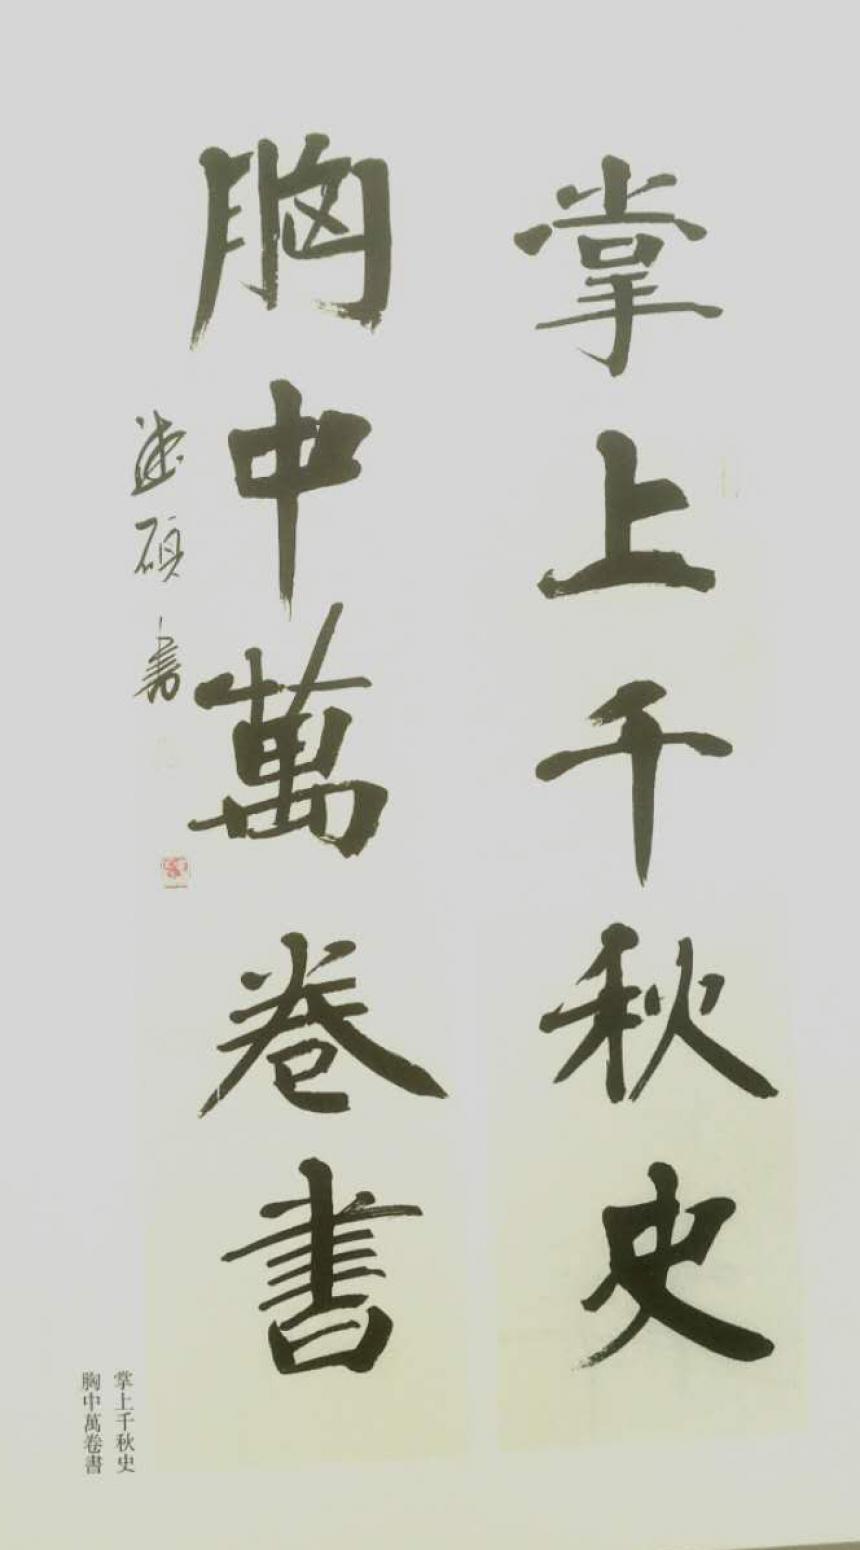 掌上千秋史
胸中萬卷書
硕書
掌上千秋史
胸中萬卷書